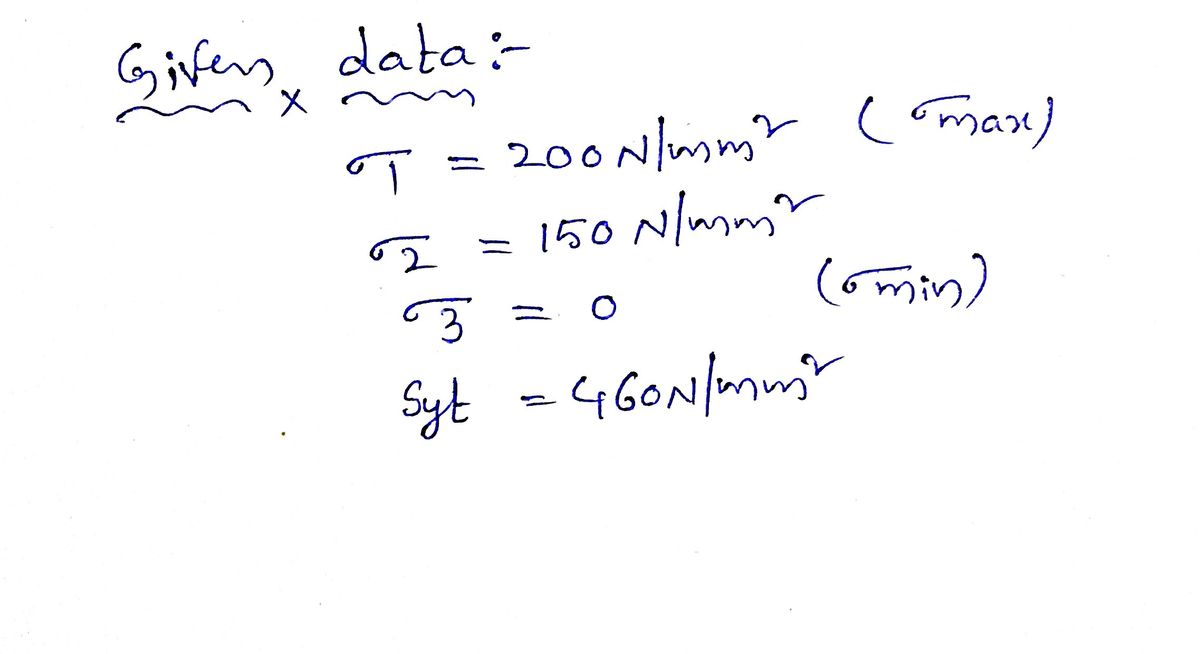 Given data :-
σ1 = 200 N/mm² (σmax)
σ2 = 150 N/mm²
σ3 = 0 (σmin)
Syt = 460N/mm²